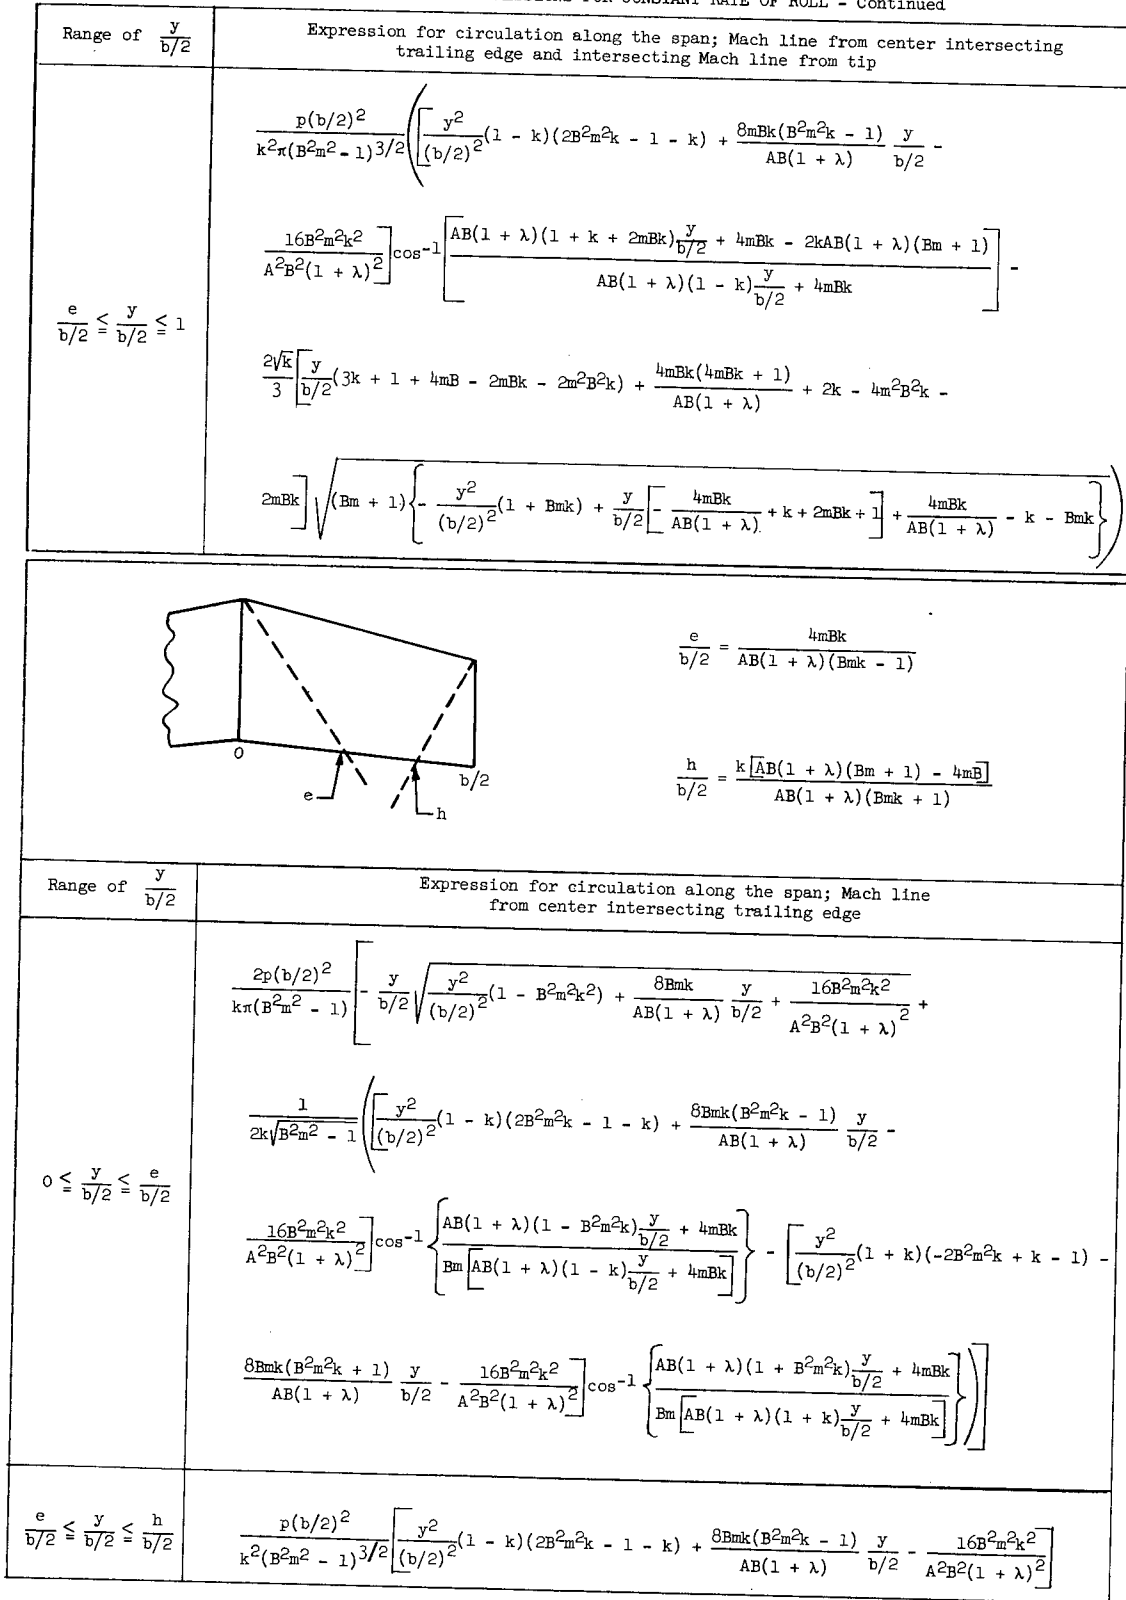 FOR CONSTANT RATE OF ROLL - Continued
Range of y/(b/2)
Expression for circulation along the span; Mach line from center intersecting
trailing edge and intersecting Mach line from tip
e/(b/2) ≦ y/(b/2) ≦ 1
p(b/2)²/(k²π(B²m² - 1)^3/2) ([y²/(b/2)² (1 - k)(2B²m²k - 1 - k) + 8mBk(B²m²k - 1)/(AB(1 + λ)) y/(b/2) -
16B²m²k²/(A²B²(1 + λ)²)] cos⁻¹[(AB(1 + λ)(1 + k + 2mBk) y/(b/2) + 4mBk - 2kAB(1 + λ)(Bm + 1))/(AB(1 + λ)(1 - k) y/(b/2) + 4mBk)] -
2√k/3 [y/(b/2) (3k + 1 + 4mB - 2mBk - 2m²B²k) + 4mBk(4mBk + 1)/(AB(1 + λ)) + 2k - 4m²B²k -
2mBk] √((Bm + 1){- y²/(b/2)² (1 + Bmk) + y/(b/2) [- 4mBk/(AB(1 + λ)) + k + 2mBk + 1] + 4mBk/(AB(1 + λ)) - k - Bmk}))
e/(b/2) = 4mBk/(AB(1 + λ)(Bmk - 1))
h/(b/2) = k[AB(1 + λ)(Bm + 1) - 4mB]/(AB(1 + λ)(Bmk + 1))
0
b/2
e
h
Range of y/(b/2)
Expression for circulation along the span; Mach line
from center intersecting trailing edge
0 ≦ y/(b/2) ≦ e/(b/2)
2p(b/2)²/(kπ(B²m² - 1)) [- y/(b/2) √(y²/(b/2)² (1 - B²m²k²) + 8Bmk/(AB(1 + λ)) y/(b/2) + 16B²m²k²/(A²B²(1 + λ)²)) +
1/(2k√(B²m² - 1)) ([y²/(b/2)² (1 - k)(2B²m²k - 1 - k) + 8Bmk(B²m²k - 1)/(AB(1 + λ)) y/(b/2) -
16B²m²k²/(A²B²(1 + λ)²)] cos⁻¹{(AB(1 + λ)(1 - B²m²k) y/(b/2) + 4mBk)/(Bm[AB(1 + λ)(1 - k) y/(b/2) + 4mBk])} - [y²/(b/2)² (1 + k)(-2B²m²k + k - 1) -
8Bmk(B²m²k + 1)/(AB(1 + λ)) y/(b/2) - 16B²m²k²/(A²B²(1 + λ)²)] cos⁻¹{(AB(1 + λ)(1 + B²m²k) y/(b/2) + 4mBk)/(Bm[AB(1 + λ)(1 + k) y/(b/2) + 4mBk])})]
e/(b/2) ≦ y/(b/2) ≦ h/(b/2)
p(b/2)²/(k²(B²m² - 1)^3/2) [y²/(b/2)² (1 - k)(2B²m²k - 1 - k) + 8Bmk(B²m²k - 1)/(AB(1 + λ)) y/(b/2) - 16B²m²k²/(A²B²(1 + λ)²)]